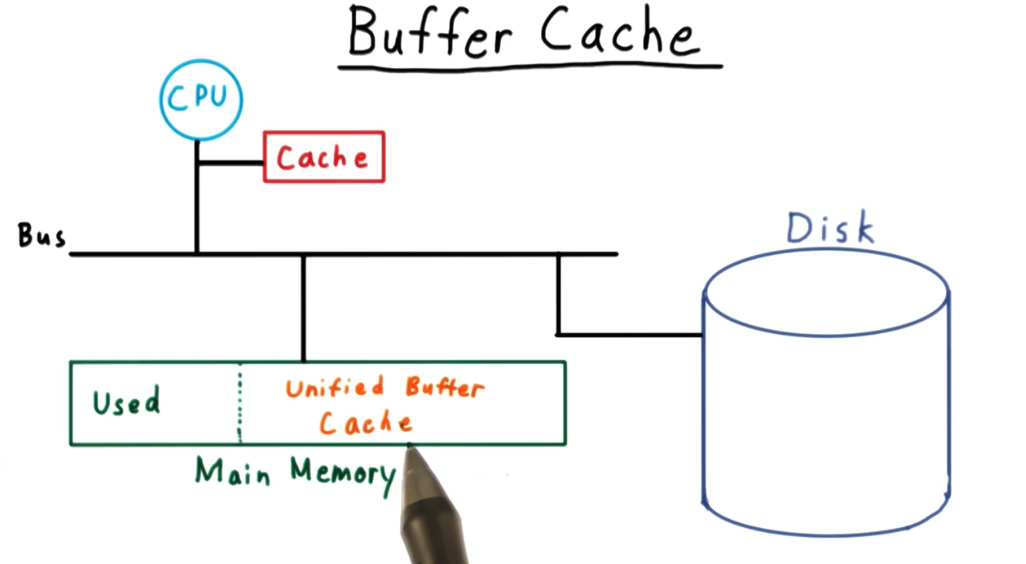 Buffer Cache
CPU
Cache
Bus
Disk
Used
Unified Buffer
Cache
Main Memory